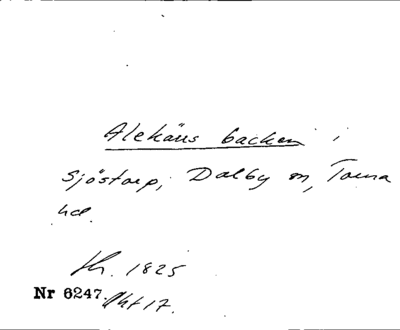 Alekärs backen i
Sjöstorp, Dalby sn, Torna
hd.
1825
Nr 6247. Akt 17.